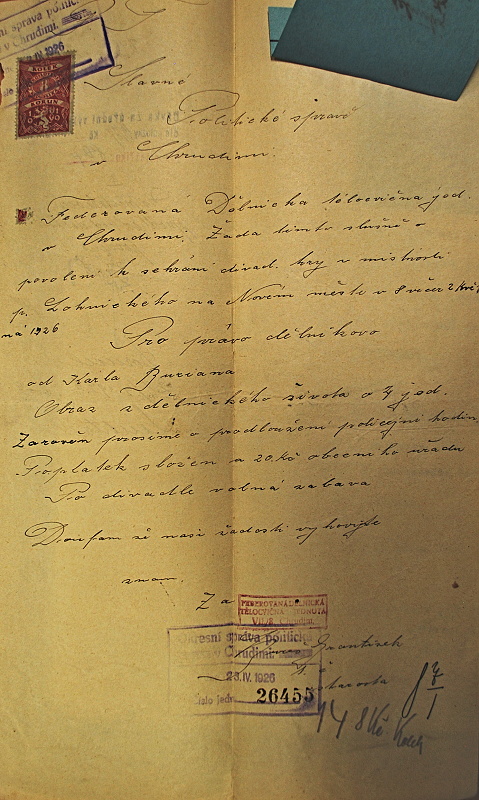 správa politic
v Chrudimi.
IV 1926
KOLEK
KORUN
Slavné
Politické správě
v Chrudimi.
Federovaná Dělnická tělocvičná jed.
v Chrudimi. Žádá tímto slušně o
povolení k sehrání divad. hry v místnosti
p. Lohnického na Novém městě v 8 večer 2/
ná 1926
Pro právo dělníkovo
od Karla Buriana
Obraz z dělnického života o 4 jed.
Zároveň prosíme o prodloužení policejní hodin.
Poplatek složen a 20.kč obecního úřadu
Po divadle volná zábava
Doufám že naší žádosti vyhovíte
znam.
Za
FEDEROVANÁ DĚLNICKÁ
TĚLOCVIČNÁ JEDNOTA
Chrudimi.
Okresní správa politická
v Chrudimi.
IV. 1926
Číslo jedn. 26455
František
8 Kč Kolek